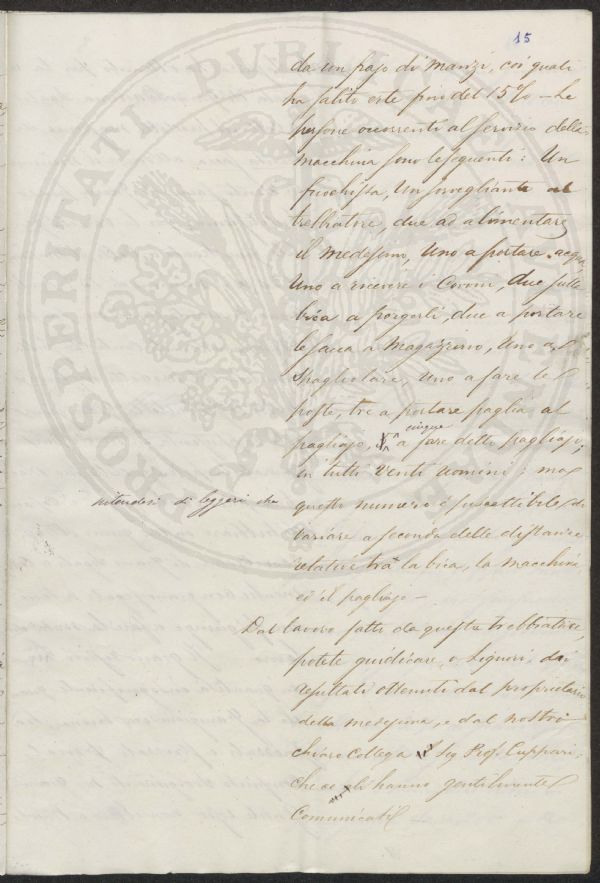 15
da un pajo di Manzi, coi quali
ha salito erte fino del 15% — Le
persone occorrenti al servizio della
macchina sono le seguenti: Un
fuochista, Un sorvegliante al
trebbiatore, due ad alimentare
il medesimo, Uno a portare acqua,
Uno a ricevere i Covoni, due sulla
bica a porgerli, due a portare
le sacca a Magazzino, Uno a
spagliolare, uno a fare le
poste, tre a portare paglia al
pagliajo, cinque a fare detto pagliajo;
in tutti Venti uomini; ma
questo numero è suscettibile di
variare a seconda delle distanze
relative tra la bica, la macchina,
ed il pagliajo —
notandosi di leggeri che
Dal lavoro fatto da questa trebbiatrice,
potete giudicare, o Signori, dai
resultati ottenuti dal proprietario
della medesima, e dal nostro
chiaro Collega Sig Prof. Cuppari;
che ce gli hanno gentilmente
Comunicati
PROSPERITATI PUBLICAE